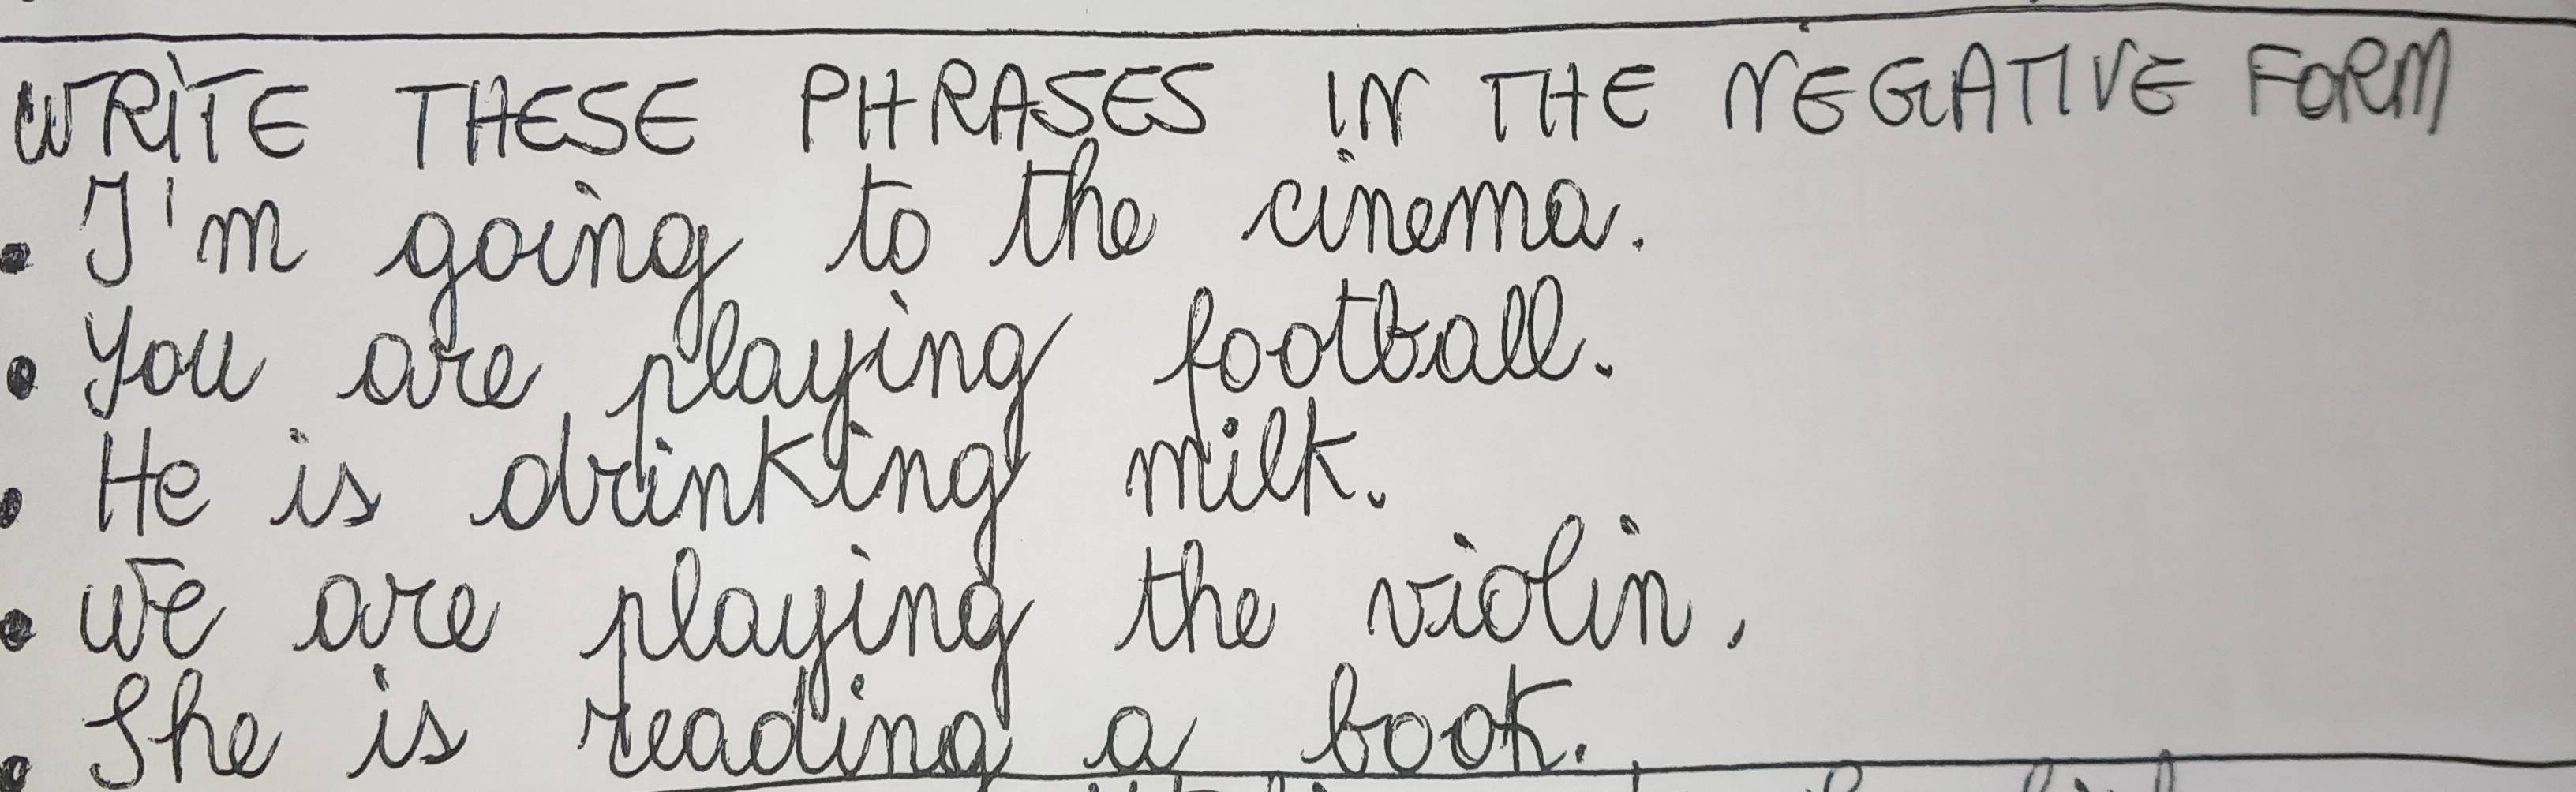 WRITE THESE PHRASES IN THE NEGATIVE FORM
• I'm going to the cinema.
• You are playing football.
• He is drinking milk.
• We are playing the violin.
• She is reading a book.